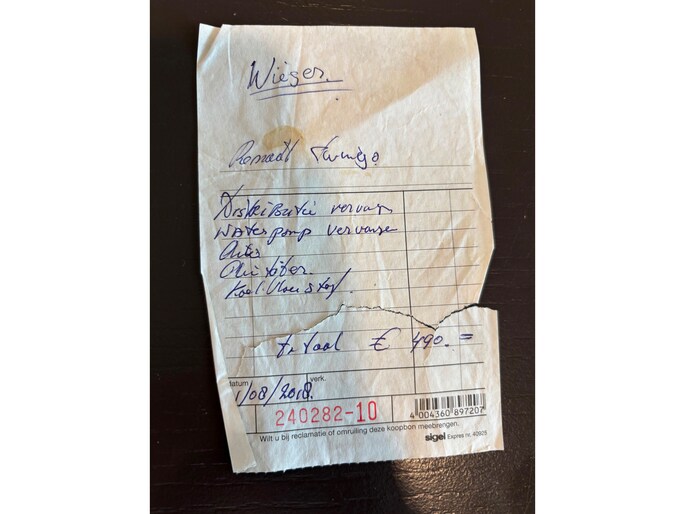 Wieger.
Renault Twingo
Distributie vervang
Waterpomp vervange
Olie filter.
Koel vloeistof.
totaal € 490.=
datum verk.
1/08/2018.
240282-10
4 004360 897207
Wilt u bij reclamatie of omruiling deze koopbon meebrengen.
sigel Expres nr. 40925